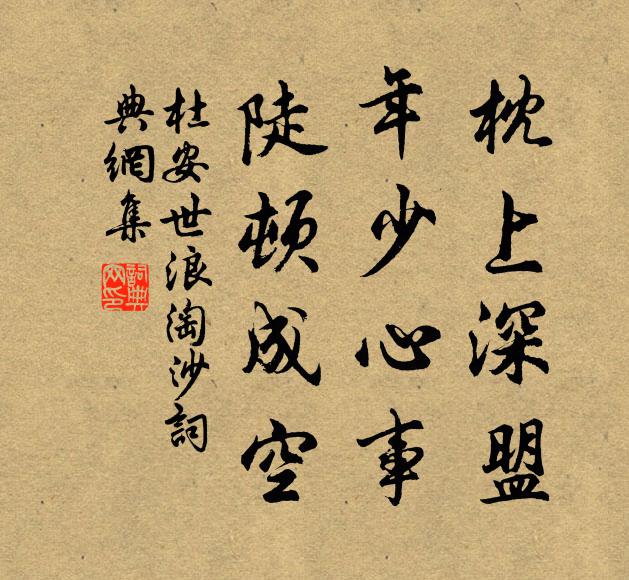 枕上深盟
年少心事
陡頓成空
杜安世浪淘沙詞
典網集
詞典網印